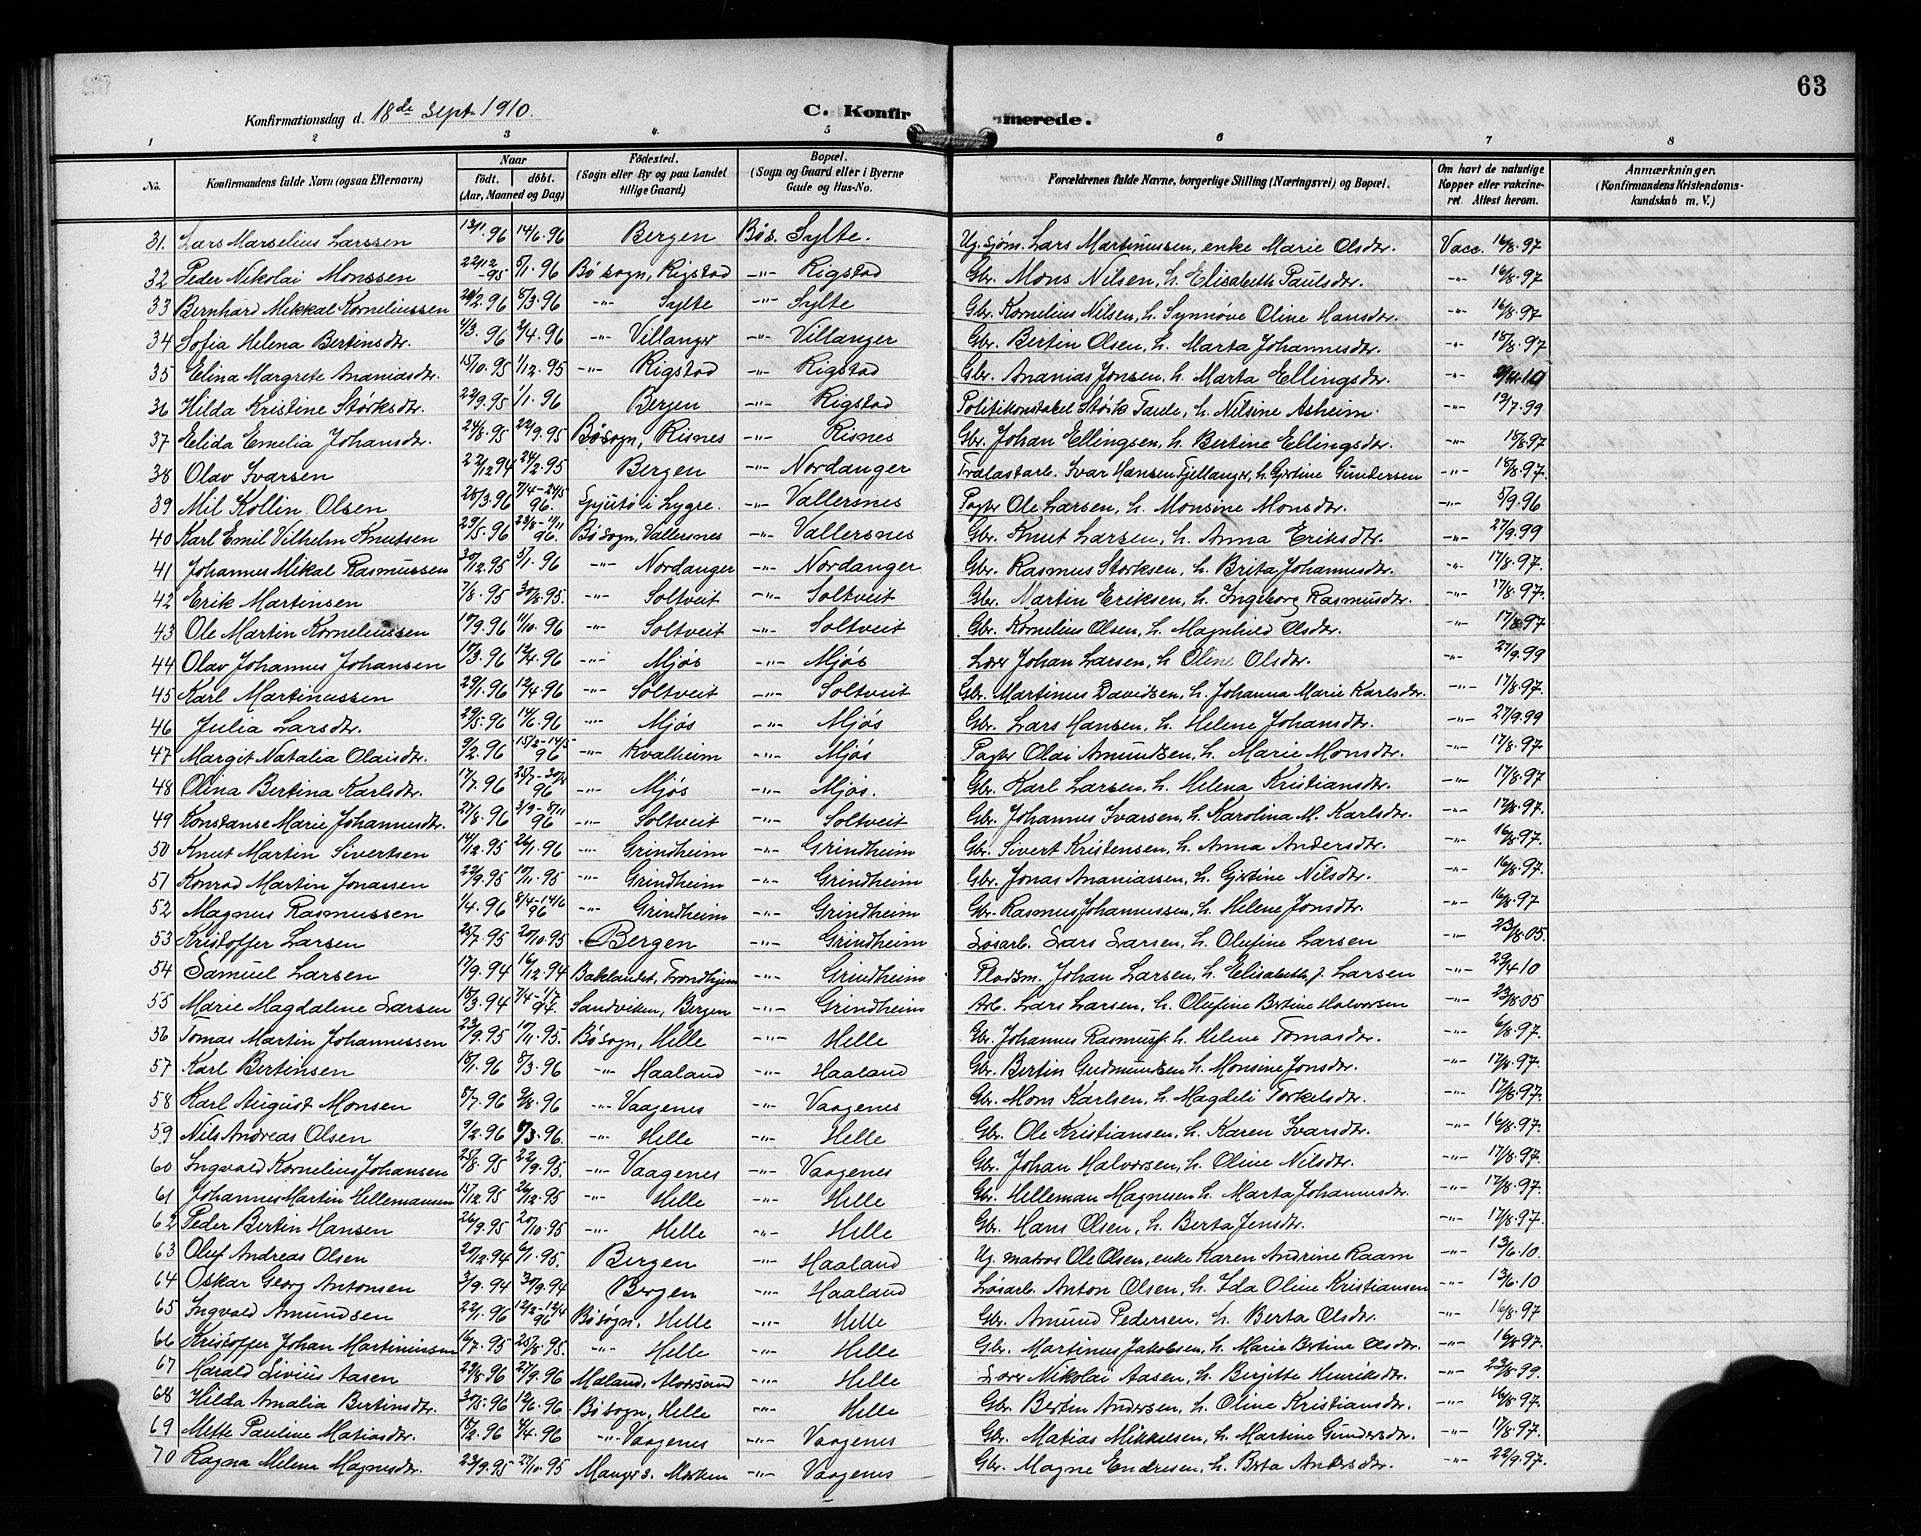 63
Konfirmationsdag d. 18de Sept. 1910.
C. Konfirmerede.
1 2 3 4 5 6 7 8
No. Konfirmandens fulde Navn (ogsaa Efternavn) Naar født. døbt. (Aar, Maaned og Dag) Fødested. (Sogn eller By og paa Landet tillige Gaard) Bopæl. (Sogn og Gaard eller i Byerne Gade og Hus-No. Forældrenes fulde Navne, borgerlige Stilling (Næringsvei) og Bopæl. Om havt de naturlige Kopper eller vakcineret. Attest herom. Anmærkninger. (Konfirmandens Kristendomskundskab m. V.)
31. Lars Marselius Larssen 13/1.96 14/6.96 Bergen Bøs. Sylte. Ug. sjøm. Lars Martinussen, enke Marie Olsdtr. Vacc. 16/8.97
32 Peder Nikolai Monssen 22/12-95 5/1.96 Bøsogn, Rigstad -"- Rigstad Gbr. Mons Nilsen, h. Elisabeth Paulsdtr. -"- 16/8.97
33 Bernhard Mikkal Korneliussen 20/2.96 8/3.96 -"- Sylte -"- Sylte Gbr. Kornelius Nilsen, h. Synnøve Oline Hansdtr. -"- 16/8.97
34 Sofia Helena Bertinsdtr. 4/3.96 2/4.96 -"- Villanger -"- Villanger Gbr. Bertin Olsen, h. Marta Johannesdtr. -"- 18/8.97
35 Elina Margrete Ananiasdtr. 15/10.95 1/12.95 -"- Rigstad -"- Rigstad Gbr. Ananias Jonsen, h. Marta Ellingsdtr. -"-
36 Hilda Kristine Størksdtr. 22/9.95 1/1.96 Bergen -"- Rigstad Politikonstabel Størk Taule, h. Nilsine Asheim. -"- 19/7.99
37 Elida Emelia Johansdtr. 24/8.95 22/9.95 Bøsogn, Risnes -"- Risnes Gbr. Johan Ellingsen, h. Bertine Ellingsdtr. -"- 18/8.97
38 Olav Ivarsen 22/12.94 24/2.95 Bergen -"- Nordanger Trælastarb. Ivar Hansen Fjellanger, h. Gjrtine Gundersen -"- 18/8.97.
39 Mil Kollin Olsen 28/3.96 7/4-24/5 96. i Lygre. -"- Vallersnes Pagtr Ole Larsen, h. Monsine Monsdtr. -"- 5/9.96
40 Karl Emil Vilhelm Knutsen 29/5.96 23/8-1/11 96. Bøsogn, Vallersnes -"- Vallersnes Gbr. Knut Larsen, h. Anna Eriksdtr. -"- 27/9.99
41 Johannes Mikal Rasmussen 30/12.95 5/1.96 -"- Nordanger -"- Nordanger Gbr. Rasmus Størksen, h. Brita Johannesdtr. -"- 17/8.97.
42 Erik Martinsen 7/8.95 30/8.95. -"- Soltveit -"- Soltveit Gbr. Martin Eriksen, h. Ingeborg Rasmusdtr. -"- 17/8.97.
43 Ole Martin Korneliussen 17/9.96 11/10.96 -"- Soltveit -"- Soltveit Gbr. Kornelius Olsen, h. Magnhild Olsdtr. -"- 17/8.97
44 Olav Johannes Johansen 17/3.96 12/4.96 -"- Mjøs -"- Mjøs Lærer Johan Larsen, h. Oline Olsdtr. -"- 27/9.99
45 Karl Martinussen 29/1.96 12/4.96 -"- Soltveit -"- Soltveit Gbr. Martinus Davidsen, h. Johanna Marie Karlsdtr. -"- 17/8.97.
46 Julia Larsdtr. 29/5.96 14/6.96 -"- Mjøs -"- Mjøs Gbr. Lars Hansen, h. Helene Johansdtr. -"- 27/9.99
47 Margit Natalia Olaisdtr. 9/2.96 15/2-14/5 96 -"- Kvalheim -"- Mjøs Pagtr Olai Amundsen, h. Marie Monsdtr. -"- 17/8.97.
48 Olina Bertina Karlsdtr. 17/7.96 96 -"- Mjøs -"- Mjøs. Gbr. Karl Larsen, h. Helena Kristiansdtr. -"- 17/8.97
49 Konstanse Marie Johannesdtr. 27/8.96 3/9-8/11 96 -"- Soltveit -"- Soltveit Gbr. Johannes Ivarsen, h. Karolina M. Karlsdtr. -"- 17/8.97.
50 Knut Martin Sivertsen 14/12.95 26/1.96 -"- Grindheim -"- Grindheim Gbr. Sivert Kristensen, h. Anna Andersdtr. -"- 16/8.97.
51 Konrad Martin Jonassen 22/9.95 17/11.95 -"- Grindheim -"- Grindheim Gbr. Jonas Ananiassen, h. Gjrtine Nilsdtr. -"- 16/8.97.
52 Magnus Rasmussen 1/4.96 8/4-14/6 96 -"- Grindheim -"- Grindheim Gbr. Rasmus Johannessen, h. Helene Jonsdtr. -"- 16/8.97
53 Kristoffer Larsen 25/7.95 20/10.95 Bergen -"- Grindheim Løsarb. Lars Larsen, h. Olufine Larsen -"- 23/8.05.
54 Samuel Larsen 17/9.94 16/12.94 Baklandet, Trondhjem -"- Grindheim Pladsm. Johan Larsen, h. Elisabeth J. Larsen -"- 29/4.10
55 Marie Magdalene Larsen 18/3.94 7/4-1/7 94. Sandviken, Bergen -"- Grindheim Arb. Lars Larsen, h. Olufine Bertine Halvorsen -"- 23/8.05
56 Tomas Martin Johannessen 23/9.95 17/11.95. Bøsogn, Helle -"- Helle Gbr. Johannes Rasmuss. h. Helene Tomasdtr. -"- 6/8.97.
57 Karl Bertinsen 18/1.96 8/3.96 -"- Haaland -"- Haaland Gbr. Bertin Gudmundsen h. Monsine Jonsdtr. -"- 17/8.97.
58 Karl August Monsen 5/7.96 9/8.96 -"- Vaagenes -"- Vaagenes Gbr. Mons Karlsen, h. Magdeli Torkelsdtr. -"- 17/8.97.
59 Nils Andreas Olsen 9/2.96 8/3.96. -"- Helle -"- Helle Gbr. Ole Kristiansen, h. Karen Ivarsdtr. -"- 16/8.97.
60 Ingvald Kornelius Johansen 25/8.95 22/9.95. -"- Vaagenes -"- Vaagenes Gbr. Johan Halvorsen, h. Oline Nilsdtr. -"- 17/8.97.
61 Johannes Martin Hellemansen 15/12.95 26/12.95 -"- Helle -"- Helle Gbr. Helleman Magnesen h. Marta Johannesdtr. -"- 17/8.97.
62 Peder Bertin Hansen 26/9.95 20/10.95 -"- Helle -"- Helle Gbr. Hans Olsen, h. Berta Jensdtr. -"- 17/8.97.
63 Oluf Andreas Olsen 20/12.94 6/1.95. Bergen -"- Haaland Ug. matros Ole Olsen, enke Karen Andrine Raam -"- 13/6.10.
64 Oskar Georg Antonsen 3/9.94 30/9.94 Bergen -"- Haaland Løsarb. Anton Olsen, h. Ida Oline Kristiansen -"- 13/6.10
65 Ingvald Amundsen 22/1.96 12/2-12/4 96 Bøsogn, Helle -"- Helle Gbr. Amund Pedersen, h. Berta Olsdtr. -"- 16/8.97
66 Kristoffer Johan Martinussen 16/7.95 25/8.95. -"- Helle -"- Helle Gbr. Martinus Jakobsen, h. Marie Bertine Olsdtr. -"- 16/8.97.
67 Harald Livius Aasen 23/8.96 27/9.96 Maland, Alversund -"- Helle Lærer Nikolai Aasen, h. Birgitte Henriksdtr. -"- 23/8.99
68 Hilda Amalia Bertinsdtr. 30/5.96 12/6.96 Bøsogn, Helle -"- Helle Gbr. Bertin Andersen, h. Oline Kristiansdtr. -"- 16/8.97.
69 Mette Pauline Matiasdtr. 15/2.96 4/4.96 -"- Vaagenes -"- Vaagenes Gbr. Matias Mikkelsen, h. Martine Gundersdtr. -"- 17/8.97.
70 Ragna Helena Magnesdtr. 23/9.95 27/10.95 Manger s. Morken -"- Vaagenes Gbr. Magne Endresen, h. Berta Andersdtr. -"- 22/9.97.